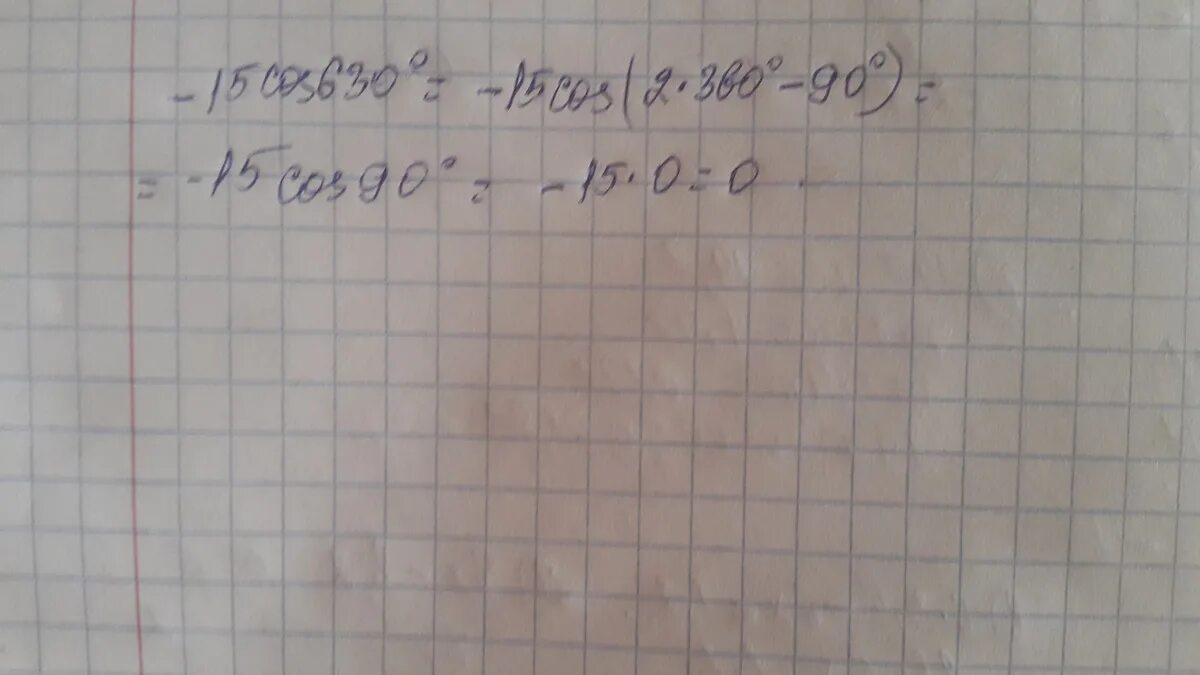 -15cos630°= -15cos(2·360°-90°)=
= -15cos90°= -15·0=0.